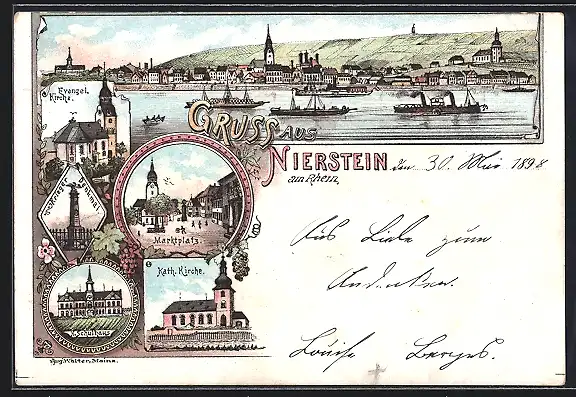 Evangel.
Kirche.
GRUSS AUS
NIERSTEIN den 30. Mai 1898
am Rhein.
Krieger Denkmal
Marktplatz.
Kath. Kirche.
Schulhaus
Aus Liebe zum
Andenken.
Louise Berges.
Aug. Walter. Mainz.